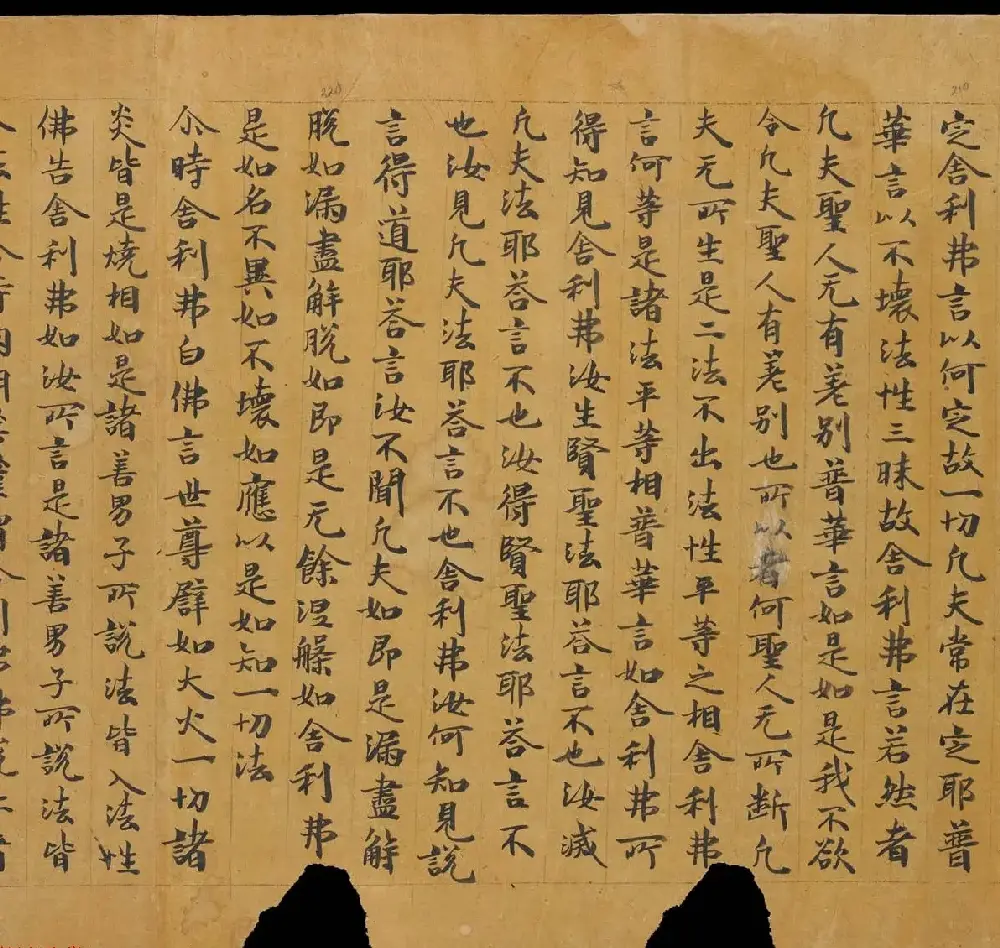 定舍利弗言以何定故一切凡夫常在定耶普
華言以不壞法性三昧故舍利弗言若然者
凡夫聖人无有差別普華言如是如是我不欲
令凡夫聖人有差別也所以者何聖人无所斷凡
夫无所生是二法不出法性平等之相舍利弗
言何等是諸法平等相普華言如舍利弗所
得知見舍利弗汝生賢聖法耶荅言不也汝滅
凡夫法耶荅言不也汝得賢聖法耶荅言不
也汝見凡夫法耶荅言不也舍利弗汝何知見說
言得道耶荅言汝不聞凡夫如即是漏盡解
脫如漏盡解脫如即是无餘涅槃如舍利弗
是如名不異如不壞如應以是如知一切法
尒時舍利弗白佛言世尊譬如大火一切諸
炎皆是燒相如是諸善男子所說法皆入法性
佛告舍利弗如汝所言是諸善男子所說法皆